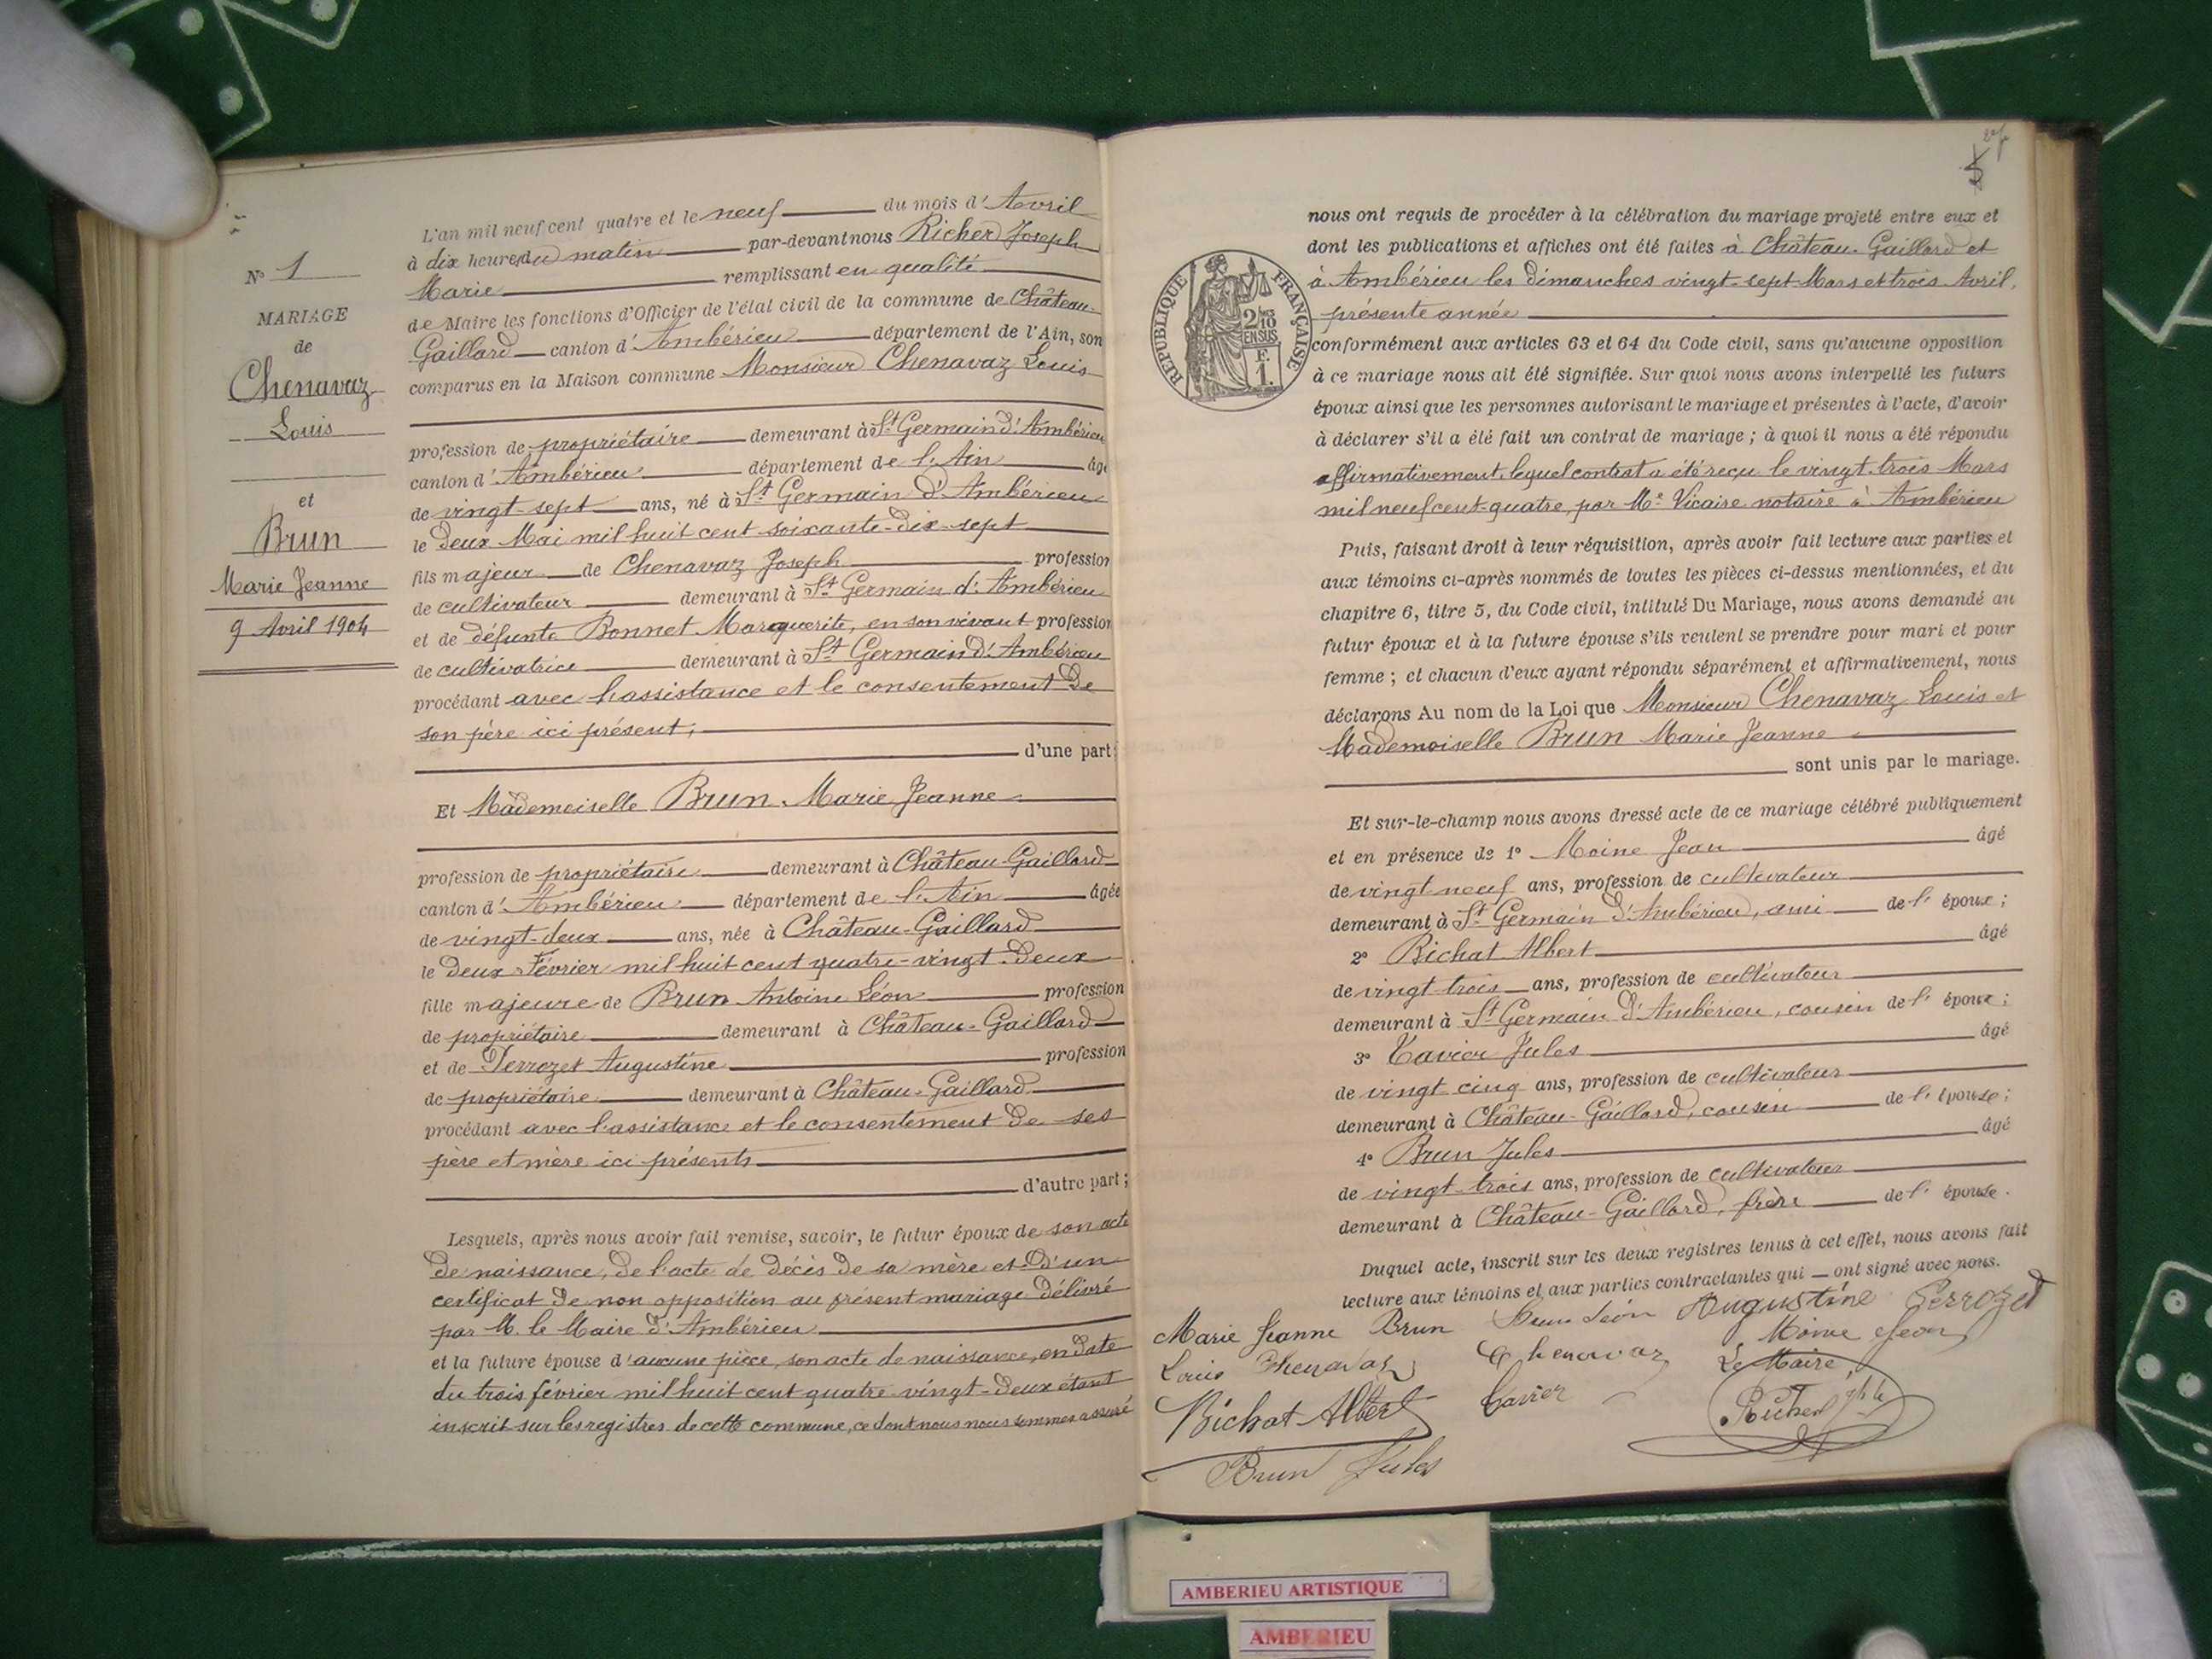 N° 1
MARIAGE
de
Chenavaz
Louis
et
Brun
Marie Jeanne
9 Avril 1904
L'an mil neuf cent quatre et le neuf du mois d'Avril
à dix heures du matin par-devant nous Richerd Joseph
Marie remplissant en qualité
de Maire les fonctions d'Officier de l'état civil de la commune de Château-
Gaillard canton d'Ambérieu département de l'Ain, son
comparus en la Maison commune Monsieur Chenavaz Louis
profession de propriétaire demeurant à St Germain d'Ambérieu
canton d'Ambérieu département de l'Ain âgé
de vingt-sept ans, né à St Germain d'Ambérieu
le deux Mai mil huit cent soixante-dix-sept
fils majeur de Chenavaz Joseph profession
de cultivateur demeurant à St Germain d'Ambérieu
et de défunte Bonnet Marguerite, en son vivant profession
de cultivatrice demeurant à St Germain d'Ambérieu
procédant avec l'assistance et le consentement de
son père ici présent;
d'une part;
Et Mademoiselle Brun Marie Jeanne
profession de propriétaire demeurant à Château-Gaillard
canton d'Ambérieu département de l'Ain âgée
de vingt-deux ans, née à Château-Gaillard
le deux Février mil huit cent quatre-vingt-deux
fille majeure de Brun Antoine Léon profession
de propriétaire demeurant à Château-Gaillard
et de Perrozet Augustine profession
de propriétaire demeurant à Château-Gaillard
procédant avec l'assistance et le consentement de ses
père et mère ici présents
d'autre part;
Lesquels, après nous avoir fait remise, savoir, le futur époux de son acte
de naissance, de l'acte de décès de sa mère et d'un
certificat de non opposition au présent mariage délivré
par M. le Maire d'Ambérieu
et la future épouse d'aucune pièce, son acte de naissance, en date
du trois février mil huit cent quatre-vingt-deux étant
inscrit sur les registres de cette commune, ce dont nous nous sommes assuré
nous ont requis de procéder à la célébration du mariage projeté entre eux et
dont les publications et affiches ont été faites à Château-Gaillard et
à Ambérieu les dimanches vingt-sept Mars et trois Avril,
présente année
RÉPUBLIQUE FRANÇAISE
2/10 EN SUS
F. 1.
conformément aux articles 63 et 64 du Code civil, sans qu'aucune opposition
à ce mariage nous ait été signifiée. Sur quoi nous avons interpellé les futurs
époux ainsi que les personnes autorisant le mariage et présentes à l'acte, d'avoir
à déclarer s'il a été fait un contrat de mariage ; à quoi il nous a été répondu
affirmativement, lequel contrat a été reçu le vingt-trois Mars
mil neuf cent-quatre, par Me Vicaire notaire à Ambérieu
Puis, faisant droit à leur réquisition, après avoir fait lecture aux parties et
aux témoins ci-après nommés de toutes les pièces ci-dessus mentionnées, et du
chapitre 6, titre 5, du Code civil, intitulé Du Mariage, nous avons demandé au
futur époux et à la future épouse s'ils veulent se prendre pour mari et pour
femme ; et chacun d'eux ayant répondu séparément et affirmativement, nous
déclarons Au nom de la Loi que Monsieur Chenavaz Louis et
Mademoiselle Brun Marie Jeanne
sont unis par le mariage.
Et sur-le-champ nous avons dressé acte de ce mariage célébré publiquement
et en présence de 1° Moine Jean âgé
de vingt neuf ans, profession de cultivateur
demeurant à St Germain d'Ambérieu, ami de l'époux;
2° Bichat Albert âgé
de vingt trois ans, profession de cultivateur
demeurant à St Germain d'Ambérieu, cousin de l'époux;
3° Tavier Jules âgé
de vingt cinq ans, profession de cultivateur
demeurant à Château-Gaillard, cousin de l'épouse;
4° Brun Jules âgé
de vingt trois ans, profession de cultivateur
demeurant à Château-Gaillard, frère de l'épouse.
Duquel acte, inscrit sur les deux registres tenus à cet effet, nous avons fait
lecture aux témoins et aux parties contractantes qui ont signé avec nous.
Marie Jeanne Brun Brun Léon Augustine Perrozet
Louis Chenavaz Chenavaz Moine Jean
Bichat Albert Tavier Le Maire
Richerd
Brun Jules
AMBERIEU ARTISTIQUE
AMBERIEU